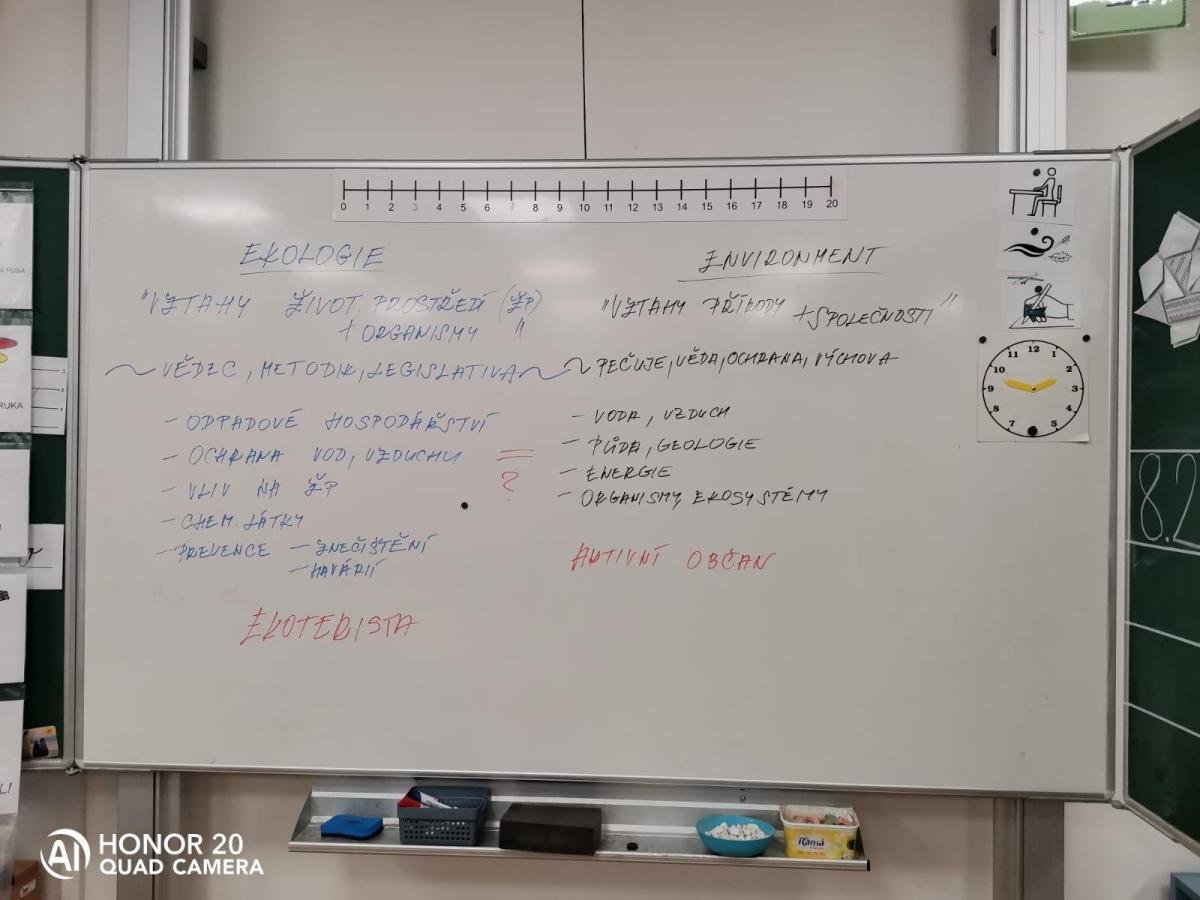 0 1 2 3 4 5 6 7 8 9 10 11 12 13 14 15 16 17 18 19 20
EKOLOGIE
"VZTAHY ŽIVOT. PROSTŘEDÍ (ŽP)
+ ORGANISMY "
~ VĚDEC, METODIK, LEGISLATIVA ~
- ODPADOVÉ HOSPODÁŘSTVÍ
- OCHRANA VOD, VZDUCHU
- VLIV NA ŽP
- CHEM. LÁTKY
- PREVENCE - ZNEČIŠTĚNÍ
- HAVÁRIÍ
EKOTERISTA
=
?
ENVIRONMENT
"VZTAHY PŘÍRODY + SPOLEČNOSTI"
~ PEČUJE, VĚDA, OCHRANA, VÝCHOVA
- VODA, VZDUCH
- PŮDA, GEOLOGIE
- ENERGIE
- ORGANISMY, EKOSYSTÉMY
AKTIVNÍ OBČAN
12 1 2 3 4 5 6 7 8 9 10 11
8.2
A FUSA
RUKA
Rama
HONOR 20
QUAD CAMERA